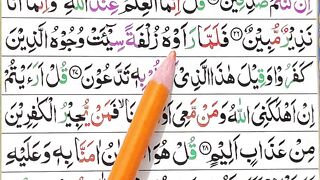 إِنْ كُنْتُمْ صٰدِقِيْنَ ۝ قُلْ إِنَّمَا الْعِلْمُ عِنْدَ اللّٰهِ وَإِنَّمَا أَنَا
نَذِيْرٌ مُّبِيْنٌ ۝٢٦ فَلَمَّا رَاَوْهُ زُلْفَةً سِيْٓئَتْ وُجُوْهُ الَّذِيْنَ
كَفَرُوْا وَقِيْلَ هٰذَا الَّذِيْ بِهٖ تَدَّعُوْنَ ۝٢٧ قُلْ اَرَءَيْتُمْ
اِنْ اَهْلَكَنِيَ اللّٰهُ وَمَنْ مَّعِيَ فَمَنْ يُّجِيْرُ الْكٰفِرِيْنَ
مِنْ عَذَابٍ اَلِيْمٍ ۝٢٨ قُلْ هُوَ اٰمَنَّا بِهٖ وَعَلَيْهِ